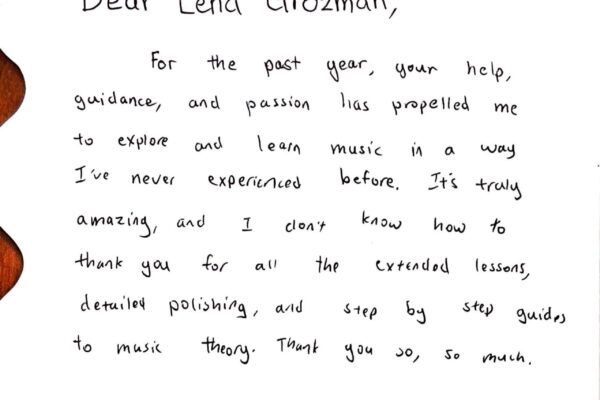 Dear Lena Grozman,
For the past year, your help,
guidance, and passion has propelled me
to explore and learn music in a way
I've never experienced before. It's truly
amazing, and I don't know how to
thank you for all the extended lessons,
detailed polishing, and step by step guides
to music theory. Thank you so, so much.